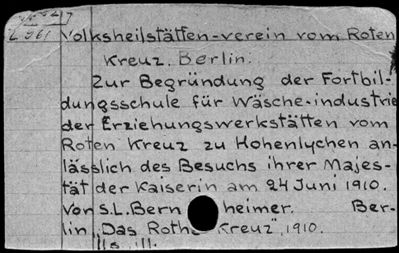 L 961
Volksheilstätten-verein vom Roten
Kreuz. Berlin.
Zur Begründung der Fortbil-
dungsschule für Wäsche-industrie
der Erziehungswerkstätten vom
Roten Kreuz zu Hohenlychen an-
lässlich des Besuchs ihrer Majes-
tät der Kaiserin am 24 Juni 1910.
Von S.L. Bern heimer. Ber-
lin „Das Rothe Kreuz", 1910.
ill.